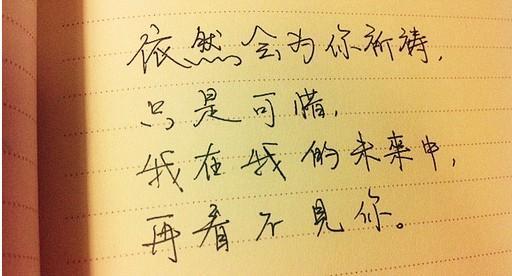 依然会为你祈祷,
只是可惜,
我在我的未來中,
再看不見你。